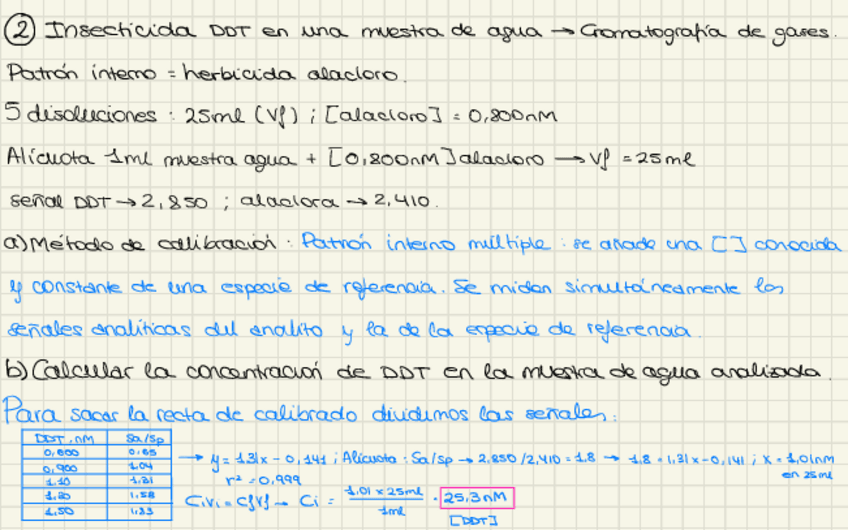 ② Insecticida DDT en una muestra de agua → Cromatografía de gases.
Patrón interno = herbicida alacloro.
5 disoluciones : 25ml (Vf) ; [alacloro] = 0,800nM
Alícuota 1ml muestra agua + [0,800nM] alacloro → Vf = 25ml
señal DDT → 2,850 ; alaclora → 2,410.
a) Método de calibración : Patrón interno múltiple : se añade una [ ] conocida
y constante de una especie de referencia. Se miden simultáneamente las
señales analíticas del analito y la de la especie de referencia.
b) Calcular la concentración de DDT en la muestra de agua analizada.
Para sacar la recta de calibrado dividimos las señales:
DDT, nM Sa/Sp
0,600 0,65
0,900 1.04
1.10 1.31
1.20 1.58
1.50 1.33
→ y = 1.31x - 0,141 ; Alícuota : Sa/Sp → 2,850/2,410 = 1.8 → 1.8 = 1,31x - 0,141 ; x = 1,01nm
en 25ml
r² = 0,999
CiVi = CfVf → Ci = 1.01 x 25ml / 1ml = 25,3nM
[DDT]